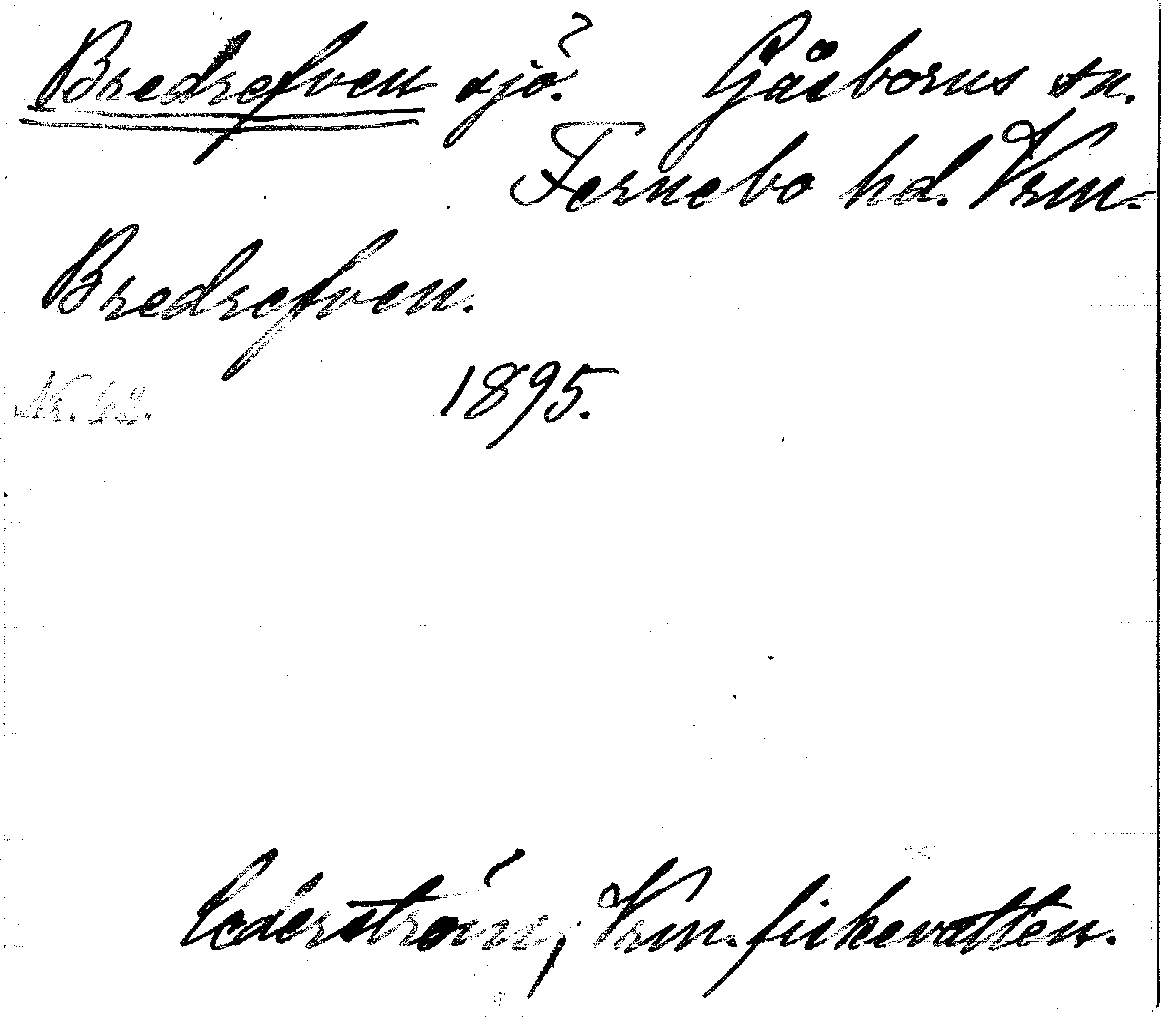 Bredrefven sjö. Gåsborns sn.
Fernebo hd. Vrm.
Bredrefven.
1895.
Cederström, Vrm. fiskevatten.